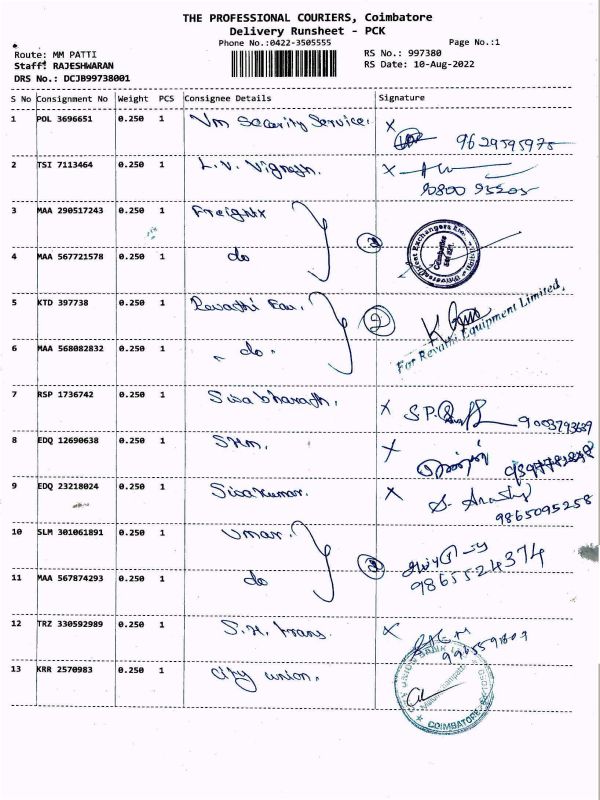 THE PROFESSIONAL COURIERS, Coimbatore
Delivery Runsheet - PCK
Phone No.:0422-3505555 Page No.:1
Route: MM PATTI RS No.: 997380
Staff: RAJESHWARAN RS Date: 10-Aug-2022
DRS No.: DCJB99738001
S No Consignment No Weight PCS Consignee Details Signature
1 POL 3696651 0.250 1 Vm Security Service. X
9629595975
2 TSI 7113464 0.250 1 L.V. Vignesh. X
3 MAA 290517243 0.250 1 Freight
4 MAA 567721578 0.250 1 do
Coimbatore
5 KTD 397738 0.250 1 Revathi Eqv. 2
For Revathi Equipment Limited,
6 MAA 568082832 0.250 1 do.
7 RSP 1736742 0.250 1 Sivabharath. X S.P.
9003793639
8 EDQ 12690638 0.250 1 X
9 EDQ 23218024 0.250 1 Sivakumar. X
9865095258
10 SLM 301061891 0.250 1 Umar.
9865524374
11 MAA 567874293 0.250 1 do
12 TRZ 330592989 0.250 1 S.K. trans. X
13 KRR 2570983 0.250 1 city union.
COIMBATORE